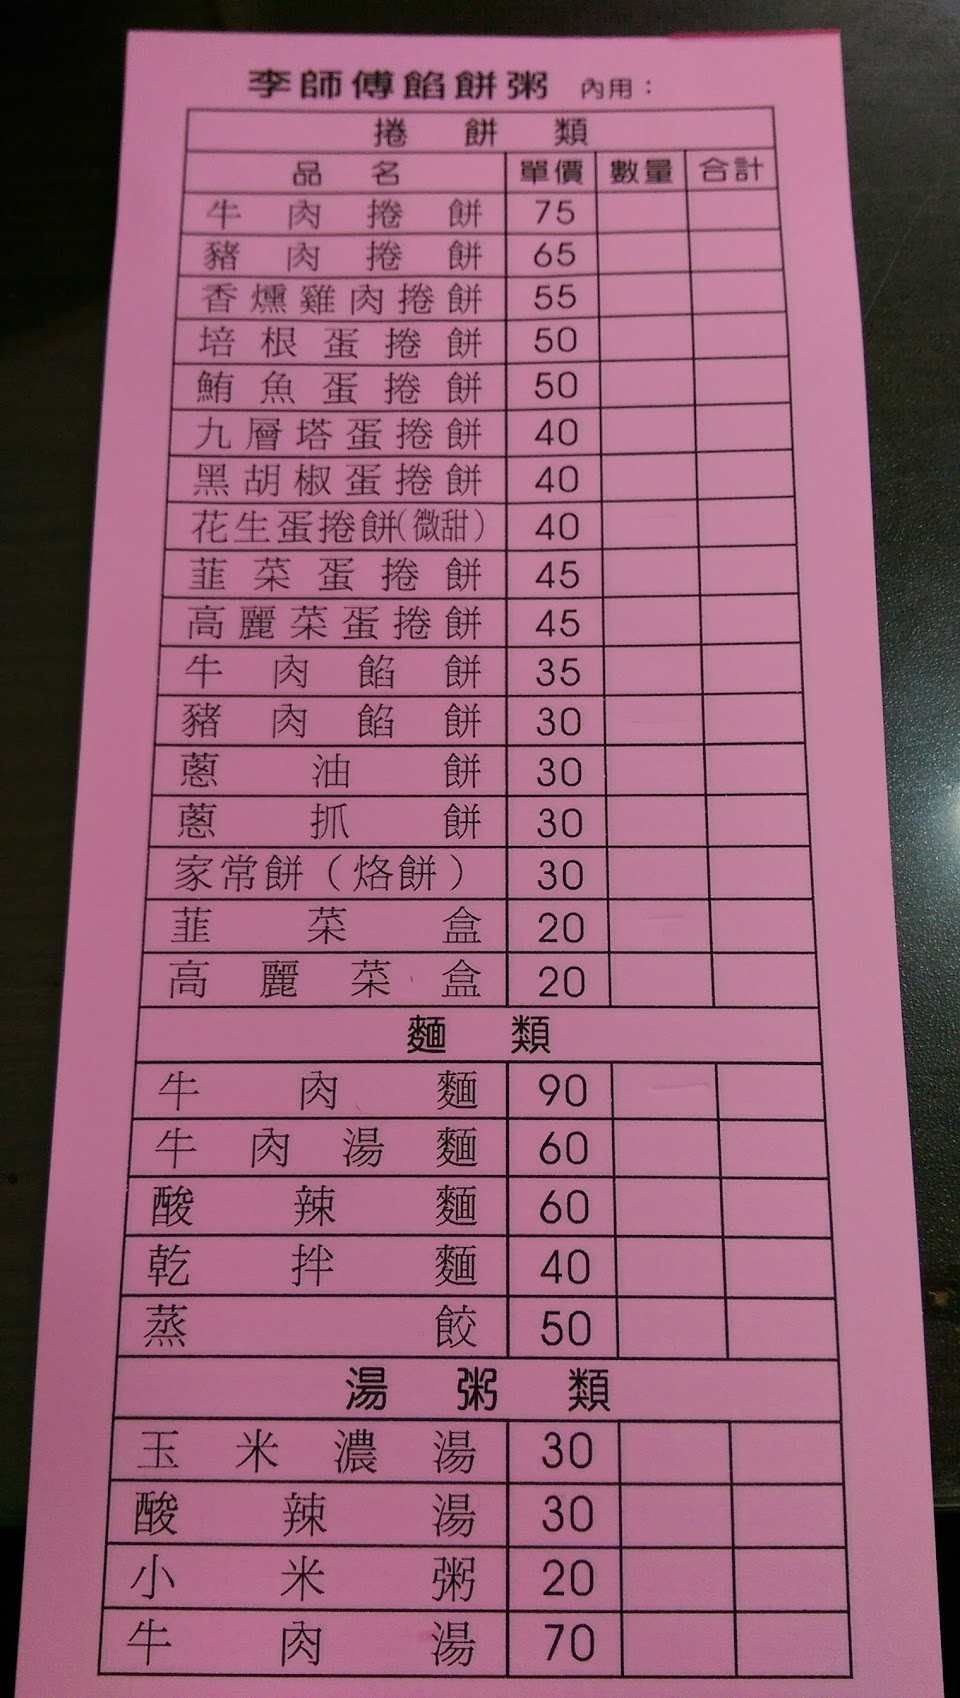 李師傅餡餅粥 內用：
捲餅類
品名 單價 數量 合計
牛肉捲餅 75
豬肉捲餅 65
香燻雞肉捲餅 55
培根蛋捲餅 50
鮪魚蛋捲餅 50
九層塔蛋捲餅 40
黑胡椒蛋捲餅 40
花生蛋捲餅(微甜) 40
韮菜蛋捲餅 45
高麗菜蛋捲餅 45
牛肉餡餅 35
豬肉餡餅 30
蔥油餅 30
蔥抓餅 30
家常餅（烙餅） 30
韮菜盒 20
高麗菜盒 20
麵類
牛肉麵 90
牛肉湯麵 60
酸辣麵 60
乾拌麵 40
蒸餃 50
湯粥類
玉米濃湯 30
酸辣湯 30
小米粥 20
牛肉湯 70